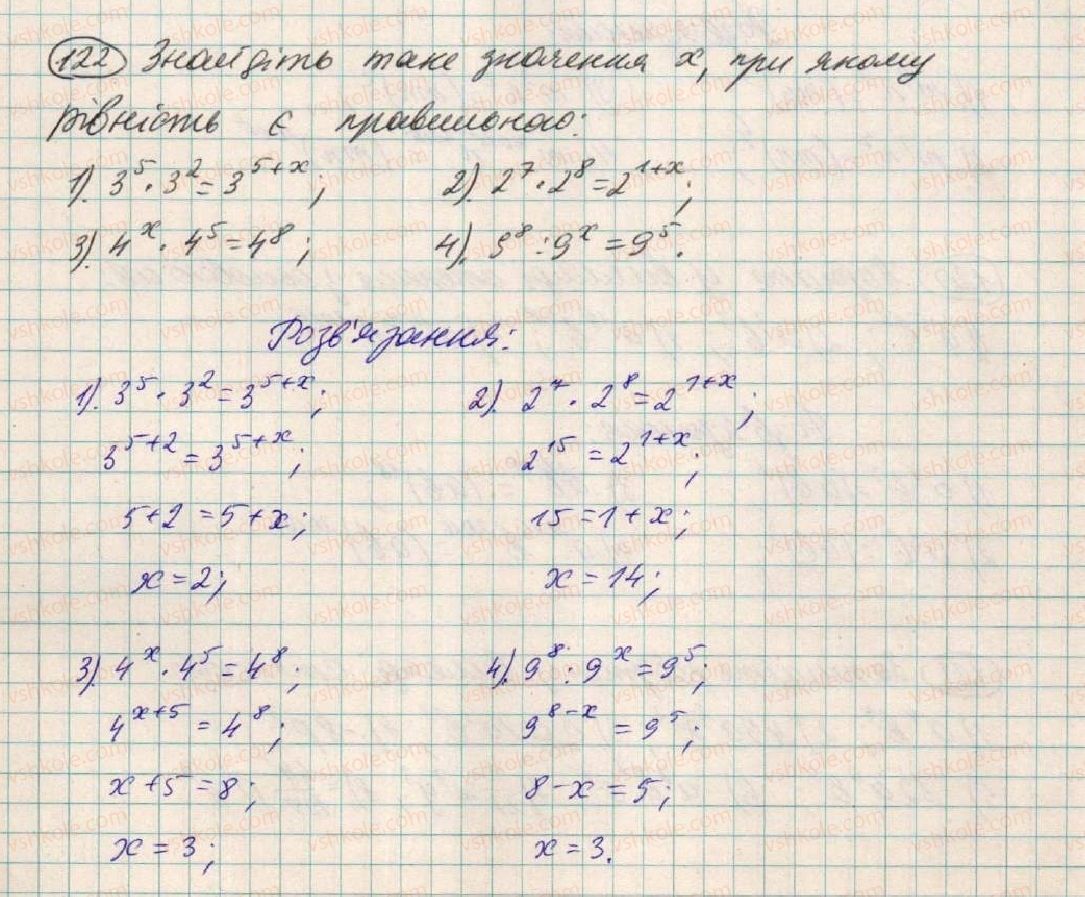 122 Знайдіть таке значення x, при якому
рівність є правильною:
1). 3^5 · 3^2 = 3^{5+x}; 2). 2^7 · 2^8 = 2^{1+x};
3). 4^x · 4^5 = 4^8; 4). 9^8 : 9^x = 9^5.
Розв'язання:
1). 3^5 · 3^2 = 3^{5+x}; 2). 2^7 · 2^8 = 2^{1+x};
3^{5+2} = 3^{5+x}; 2^{15} = 2^{1+x};
5+2 = 5+x; 15 = 1+x;
x = 2; x = 14;
3). 4^x · 4^5 = 4^8; 4). 9^8 : 9^x = 9^5;
4^{x+5} = 4^8; 9^{8-x} = 9^5;
x+5 = 8; 8-x = 5;
x = 3; x = 3.
vshkole.com